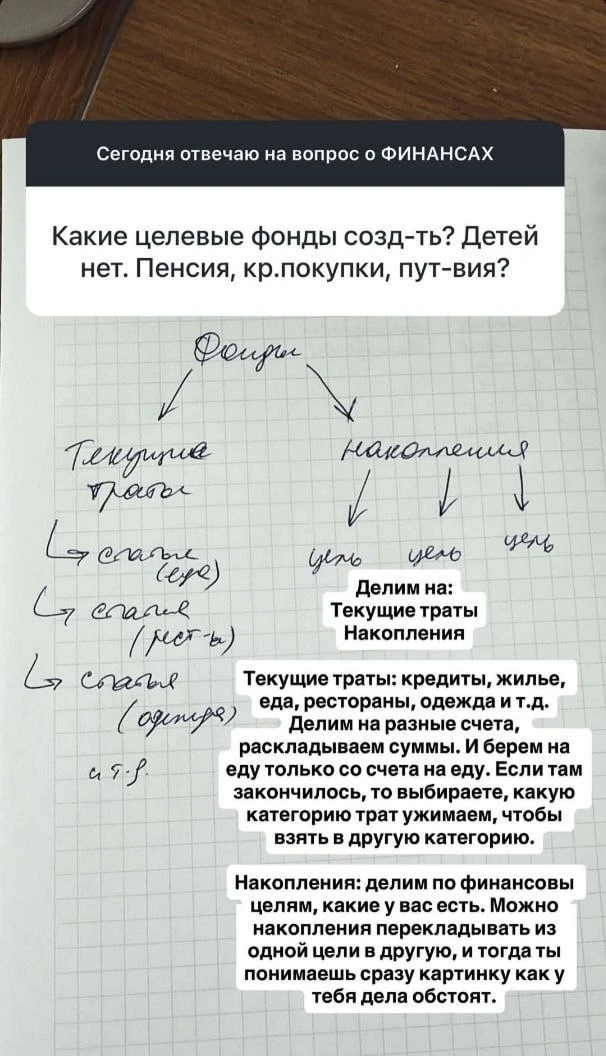 Сегодня отвечаю на вопрос о ФИНАНСАХ
Какие целевые фонды созд-ть? Детей
нет. Пенсия, кр.покупки, пут-вия?
Фонды
Текущие
траты
статья
(еда)
статья
(рест-ы)
статья
(одежда)
и т.д.
накопления
цель цель цель
Делим на:
Текущие траты
Накопления
Текущие траты: кредиты, жилье,
еда, рестораны, одежда и т.д.
Делим на разные счета,
раскладываем суммы. И берем на
еду только со счета на еду. Если там
закончилось, то выбираете, какую
категорию трат ужимаем, чтобы
взять в другую категорию.
Накопления: делим по финансовы
целям, какие у вас есть. Можно
накопления перекладывать из
одной цели в другую, и тогда ты
понимаешь сразу картинку как у
тебя дела обстоят.